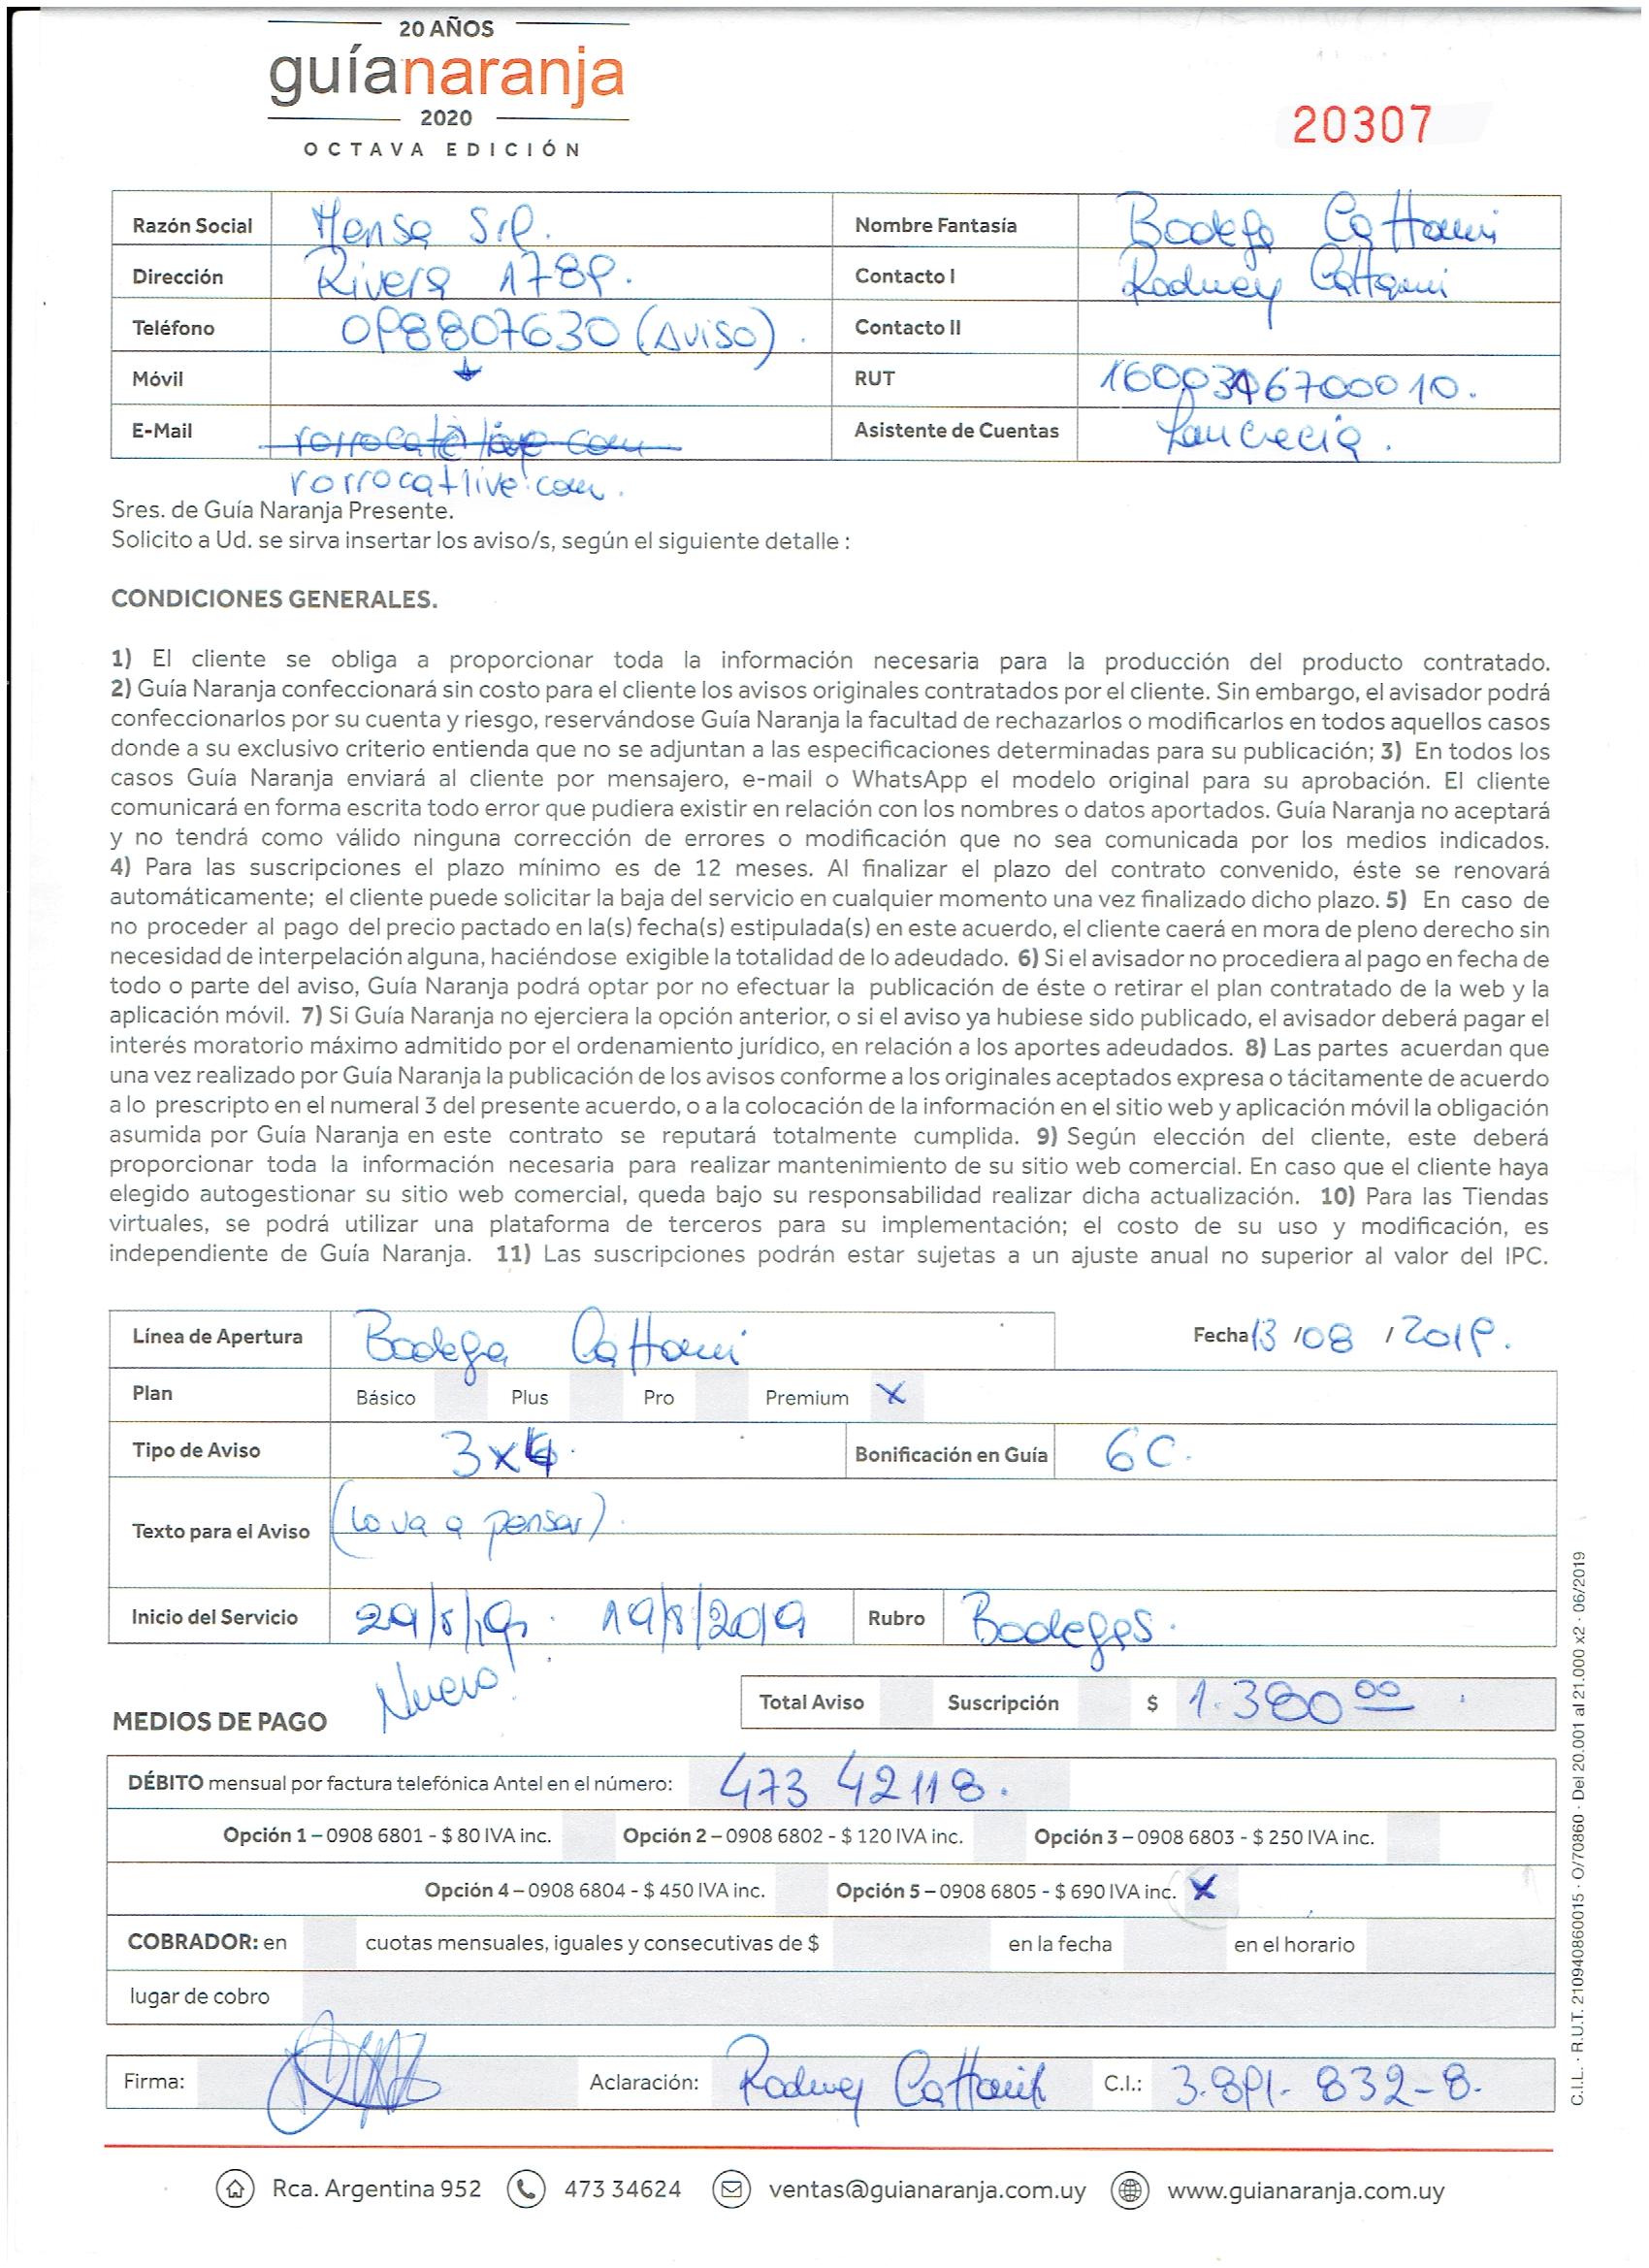 20 AÑOS
guíanaranja
2020
OCTAVA EDICIÓN
20307
Razón Social Mensa Srl. Nombre Fantasía Bodega Cattani
Dirección Rivera 1789. Contacto I Rodney Cattani
Teléfono 098807630 (Aviso). Contacto II
Móvil RUT 1600346700010.
E-Mail Asistente de Cuentas
rorrocatlive.com.
Sres. de Guía Naranja Presente.
Solicito a Ud. se sirva insertar los aviso/s, según el siguiente detalle :
CONDICIONES GENERALES.
1) El cliente se obliga a proporcionar toda la información necesaria para la producción del producto contratado.
2) Guía Naranja confeccionará sin costo para el cliente los avisos originales contratados por el cliente. Sin embargo, el avisador podrá
confeccionarlos por su cuenta y riesgo, reservándose Guía Naranja la facultad de rechazarlos o modificarlos en todos aquellos casos
donde a su exclusivo criterio entienda que no se adjuntan a las especificaciones determinadas para su publicación; 3) En todos los
casos Guía Naranja enviará al cliente por mensajero, e-mail o WhatsApp el modelo original para su aprobación. El cliente
comunicará en forma escrita todo error que pudiera existir en relación con los nombres o datos aportados. Guía Naranja no aceptará
y no tendrá como válido ninguna corrección de errores o modificación que no sea comunicada por los medios indicados.
4) Para las suscripciones el plazo mínimo es de 12 meses. Al finalizar el plazo del contrato convenido, éste se renovará
automáticamente; el cliente puede solicitar la baja del servicio en cualquier momento una vez finalizado dicho plazo. 5) En caso de
no proceder al pago del precio pactado en la(s) fecha(s) estipulada(s) en este acuerdo, el cliente caerá en mora de pleno derecho sin
necesidad de interpelación alguna, haciéndose exigible la totalidad de lo adeudado. 6) Si el avisador no procediera al pago en fecha de
todo o parte del aviso, Guía Naranja podrá optar por no efectuar la publicación de éste o retirar el plan contratado de la web y la
aplicación móvil. 7) Si Guía Naranja no ejerciera la opción anterior, o si el aviso ya hubiese sido publicado, el avisador deberá pagar el
interés moratorio máximo admitido por el ordenamiento jurídico, en relación a los aportes adeudados. 8) Las partes acuerdan que
una vez realizado por Guía Naranja la publicación de los avisos conforme a los originales aceptados expresa o tácitamente de acuerdo
a lo prescripto en el numeral 3 del presente acuerdo, o a la colocación de la información en el sitio web y aplicación móvil la obligación
asumida por Guía Naranja en este contrato se reputará totalmente cumplida. 9) Según elección del cliente, este deberá
proporcionar toda la información necesaria para realizar mantenimiento de su sitio web comercial. En caso que el cliente haya
elegido autogestionar su sitio web comercial, queda bajo su responsabilidad realizar dicha actualización. 10) Para las Tiendas
virtuales, se podrá utilizar una plataforma de terceros para su implementación; el costo de su uso y modificación, es
independiente de Guía Naranja. 11) Las suscripciones podrán estar sujetas a un ajuste anual no superior al valor del IPC.
Línea de Apertura Bodega Cattani Fecha 13 /08 / 2019.
Plan Básico Plus Pro Premium X
Tipo de Aviso 3x4. Bonificación en Guía 6C.
Texto para el Aviso (Lo va a pensar).
Inicio del Servicio 29/8/19. 19/8/2019 Rubro Bodegas.
Nuevo!
MEDIOS DE PAGO Total Aviso Suscripción $ 1.380 00
DÉBITO mensual por factura telefónica Antel en el número: 473 42118.
Opción 1 – 0908 6801 - $ 80 IVA inc. Opción 2 – 0908 6802 - $ 120 IVA inc. Opción 3 – 0908 6803 - $ 250 IVA inc.
Opción 4 – 0908 6804 - $ 450 IVA inc. Opción 5 – 0908 6805 - $ 690 IVA inc. X
COBRADOR: en cuotas mensuales, iguales y consecutivas de $ en la fecha en el horario
lugar de cobro
Firma: Aclaración: Rodney Cattani C.I.: 3.891.832-8.
Rca. Argentina 952 473 34624 ventas@guianaranja.com.uy www.guianaranja.com.uy
C.I.L. · R.U.T. 210940860015 · O/70860 · Del 20.001 al 21.000 x2 · 06/2019